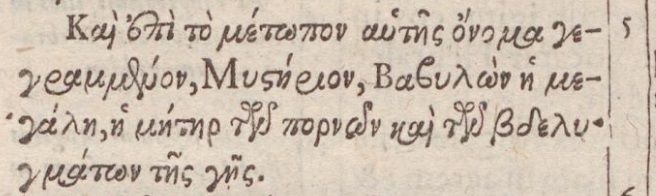 Καὶ ἐπὶ τὸ μέτωπον αὐτῆς ὄνομα γε- 5
γραμμένον, Μυστήριον, Βαβυλὼν ἡ με-
γάλη, ἡ μήτηρ τῶν πορνῶν καὶ τῶν βδελυ-
γμάτων τῆς γῆς.